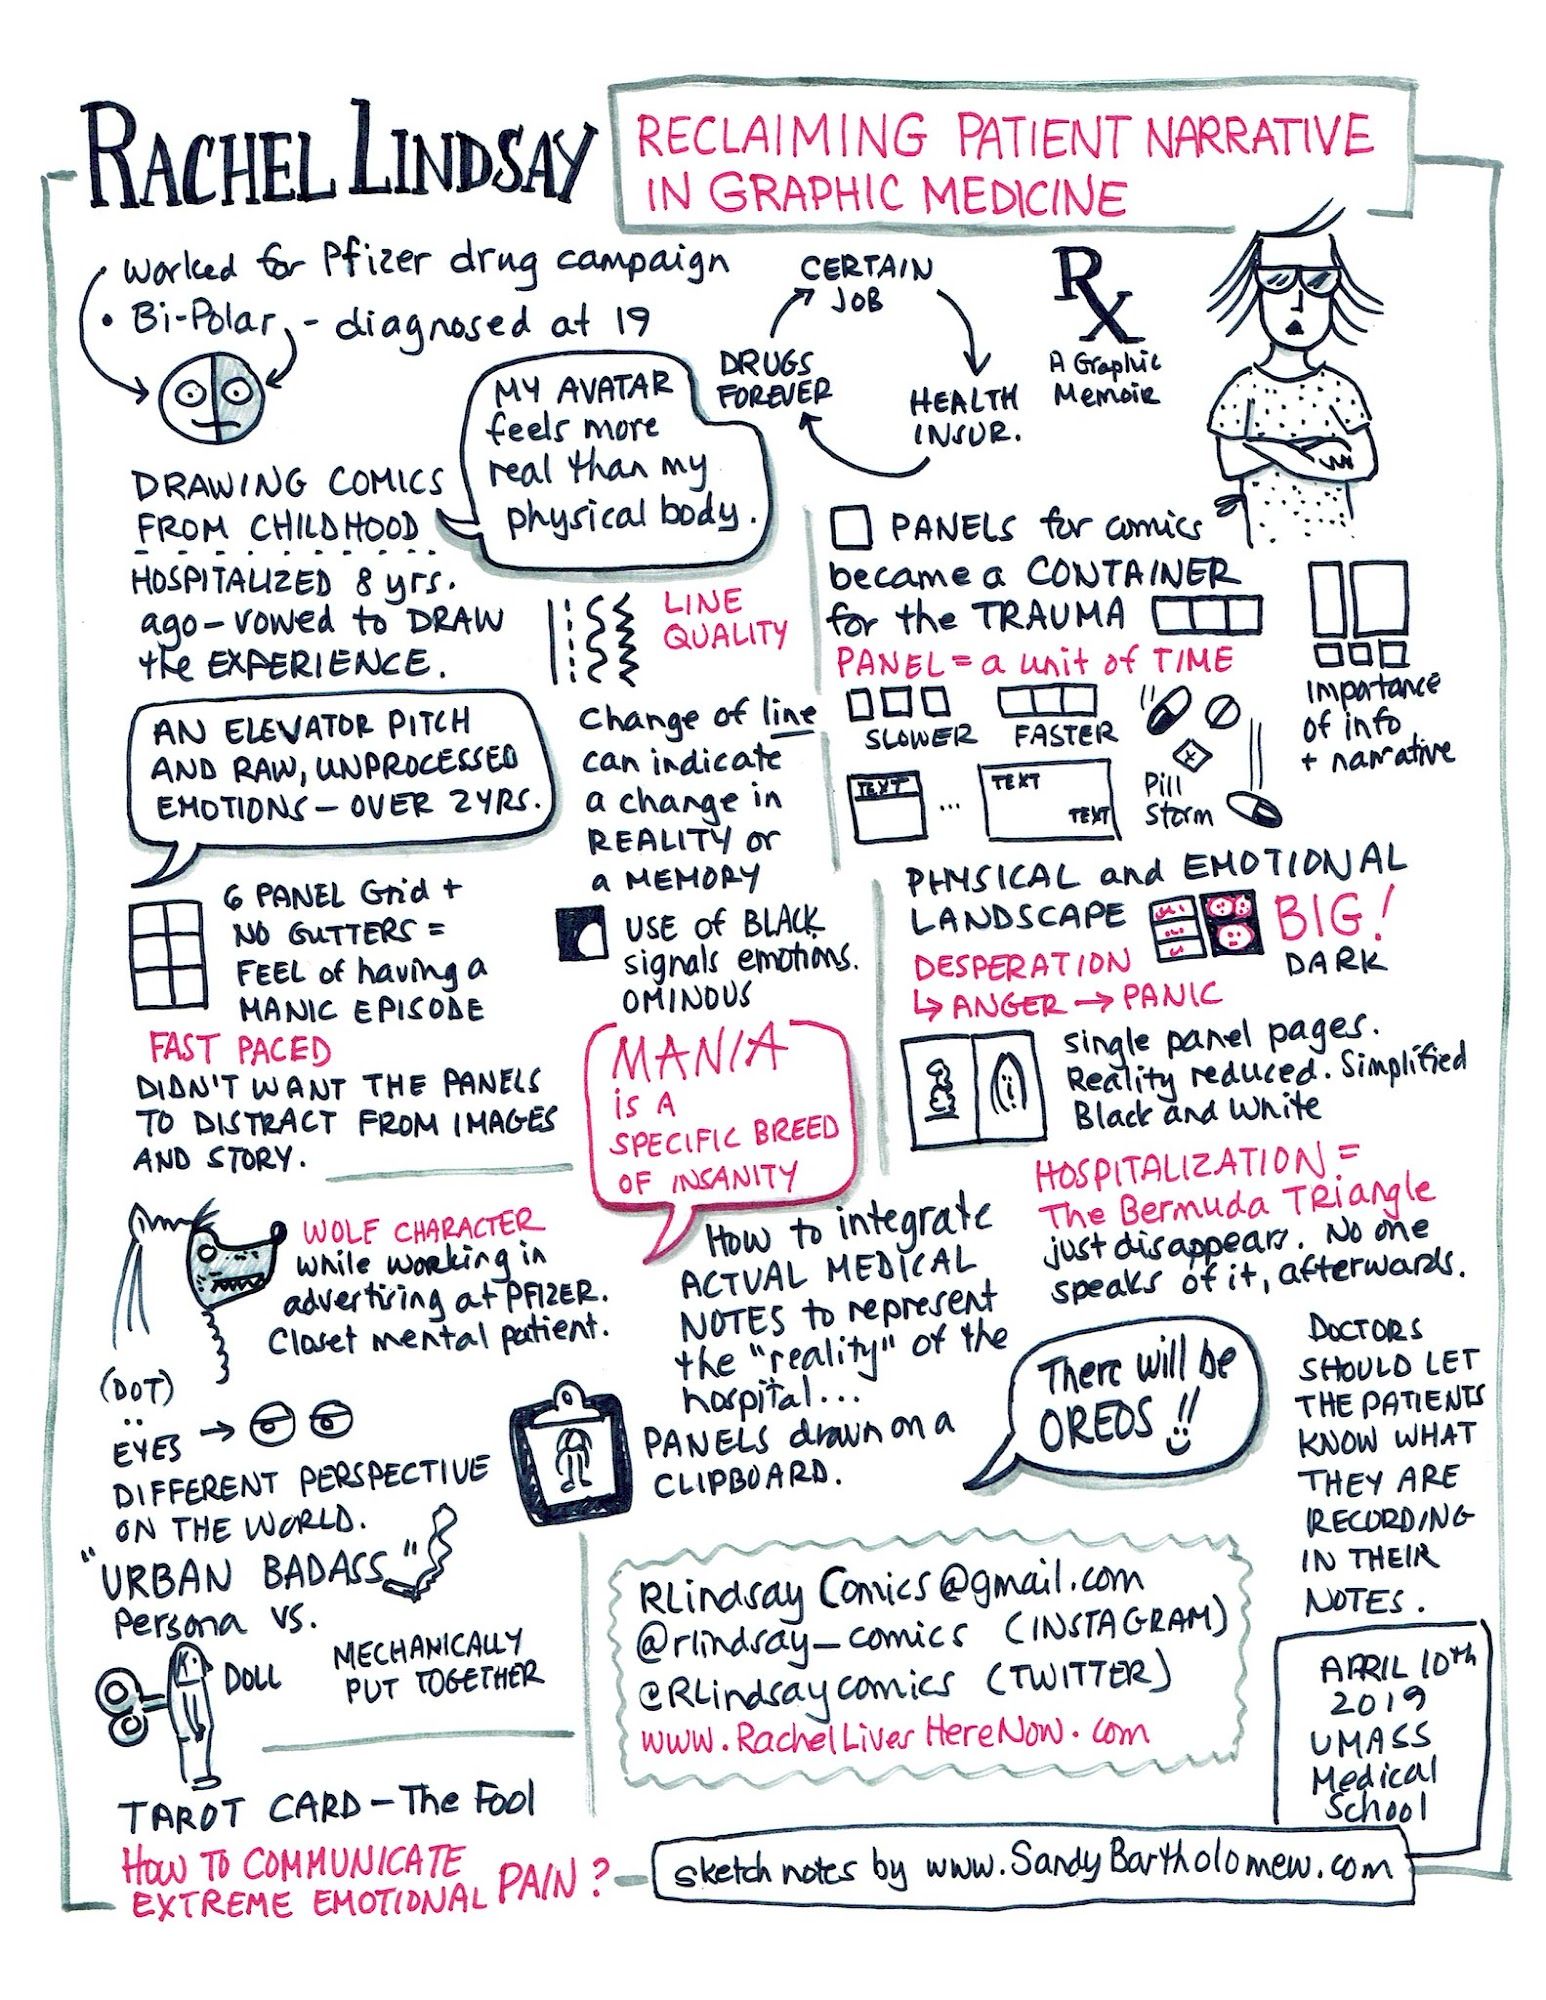 RACHEL LINDSAY
RECLAIMING PATIENT NARRATIVE
IN GRAPHIC MEDICINE
worked for Pfizer drug campaign
• Bi-Polar - diagnosed at 19
CERTAIN
JOB
HEALTH
INSUR.
DRUGS
FOREVER
RX
A Graphic
Memoir
MY AVATAR
feels more
real than my
physical body.
DRAWING COMICS
FROM CHILDHOOD
HOSPITALIZED 8 yrs.
ago - vowed to DRAW
the EXPERIENCE.
LINE
QUALITY
AN ELEVATOR PITCH
AND RAW, UNPROCESSED
EMOTIONS - OVER 2 YRS.
Change of line
can indicate
a change in
REALITY or
a MEMORY
6 PANEL Grid +
NO GUTTERS =
FEEL of having a
MANIC EPISODE
FAST PACED
DIDN'T WANT THE PANELS
TO DISTRACT FROM IMAGES
AND STORY.
USE of BLACK
signals emotions.
OMINOUS
MANIA
is A
SPECIFIC BREED
OF INSANITY
PANELS for comics
became a CONTAINER
for the TRAUMA
PANEL = a unit of TIME
SLOWER
FASTER
TEXT
...
TEXT
TEXT
Pill
Storm
importance
of info
+ narrative
PHYSICAL and EMOTIONAL
LANDSCAPE
BIG!
DARK
DESPERATION
↳ ANGER → PANIC
Single panel pages.
Reality reduced. Simplified
Black and White
HOSPITALIZATION =
The Bermuda TRiangle
just disappears. No one
speaks of it, afterwards.
WOLF CHARACTER
while working in
advertising at PFIZER.
Closet mental patient.
(DOT)
EYES →
DIFFERENT PERSPECTIVE
ON THE WORLD.
"URBAN BADASS"
Persona vs.
DOLL
MECHANICALLY
PUT TOGETHER
TAROT CARD - The Fool
HOW TO COMMUNICATE
EXTREME EMOTIONAL PAIN?
How to integrate
ACTUAL MEDICAL
NOTES to represent
the "reality" of the
hospital...
PANELS drawn on a
CLIPBOARD.
There will be
OREOS!!
DOCTORS
SHOULD LET
THE PATIENTS
KNOW WHAT
THEY ARE
RECORDING
IN THEIR
NOTES.
RLindsay Comics@gmail.com
@rlindsay_comics (INSTAGRAM)
@RLindsaycomics (TWITTER)
www.RachelLivesHereNow.com
APRIL 10th
2019
UMASS
Medical
School
sketch notes by www.SandyBartholomew.com